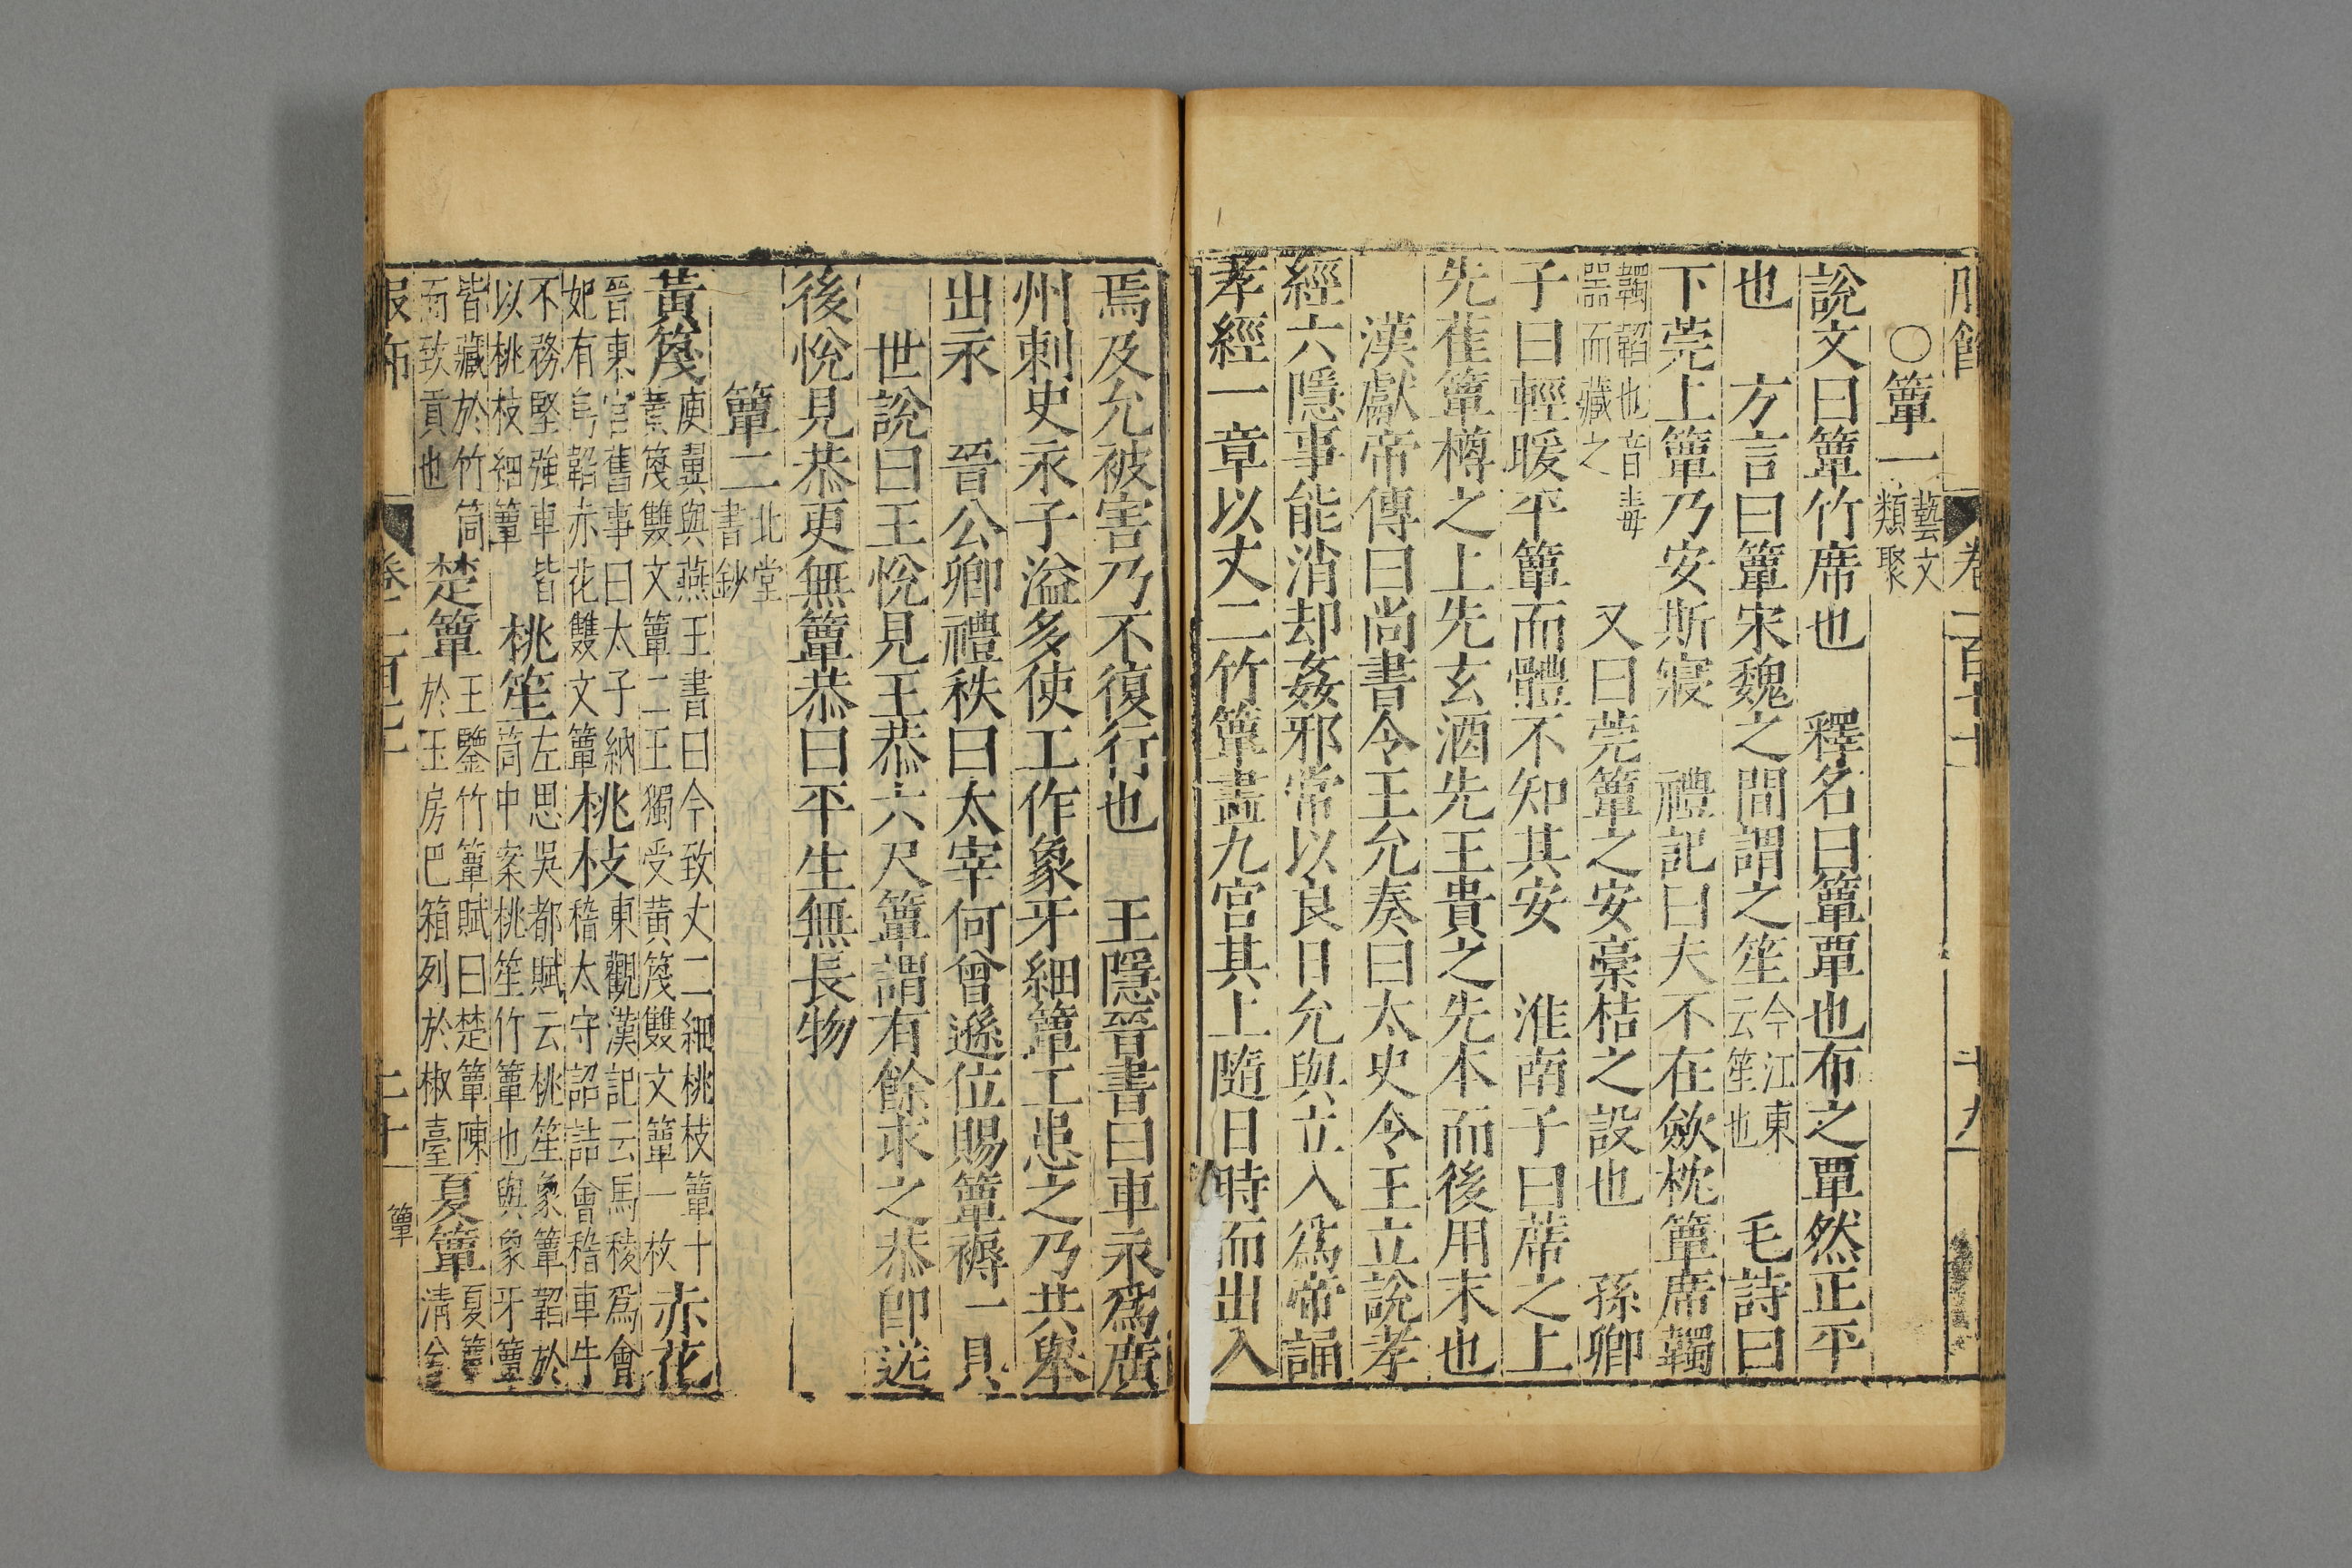 服飾 卷二百七十 十九
○簟一藝文類聚
說文曰簟竹席也 釋名曰簟覃也布之覃然正平
也 方言曰簟宋魏之間謂之笙今江東云笙也 毛詩曰
下莞上簟乃安斯寢 禮記曰夫不在斂枕簟席韣
韣韜也音毒器而藏之 又曰莞簟之安稾桔之設也 孫卿
子曰輕暖平簟而體不知其安 淮南子曰蓆之上
先萑簟樽之上先玄酒先王貴之先本而後用末也
漢獻帝傳曰尚書令王允奏曰太史令王立說孝
經六隱事能消却姦邪常以良日允與立入爲帝誦
孝經一章以丈二竹簟畫九宮其上隨日時而出入
焉及允被害乃不復行也 王隱晉書曰車永爲廣
州刺史永子溢多使工作象牙細簟工患之乃共舉
出永 晉公卿禮秩曰太宰何曾遜位賜簟褥一具
世說曰王悅見王恭六尺簟謂有餘求之恭卽送
後悅見恭更無簟恭曰平生無長物
簟二北堂書鈔
黃篾庾翼與燕王書曰今致丈二細桃枝簟十黃篾雙文簟二王獨受黃篾雙文簟一枚 赤花
晉東宮舊事曰太子納妃有烏韜赤花雙文簟 桃枝東觀漢記云馬稜爲會稽太守詔詰會稽車牛
不務堅强車皆以桃枝細簟 桃笙左思吳都賦云桃笙象簟韜於筒中案桃笙竹簟也與象牙簟
皆藏於竹筒而致貢也 楚簟王鑒竹簟賦曰楚簟陳於玉房巴箱列於椒臺 夏簟夏簟清兮
服飾 卷二百七十 二十 簟